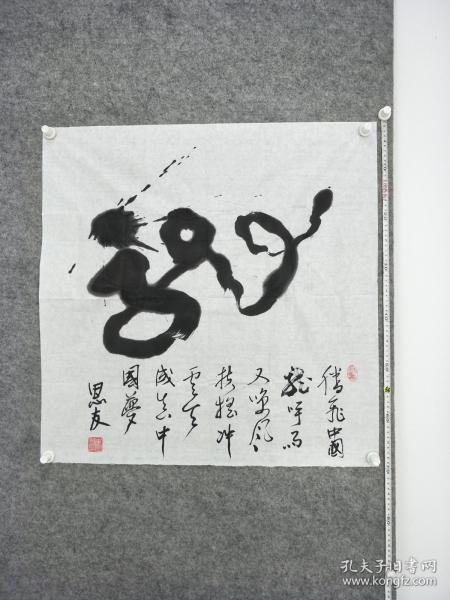 腾飛中國
龍呼雨
又喚風
扶摇冲
雲天
成真中
國夢
思友
孔夫子旧书网
www.kongfz.com